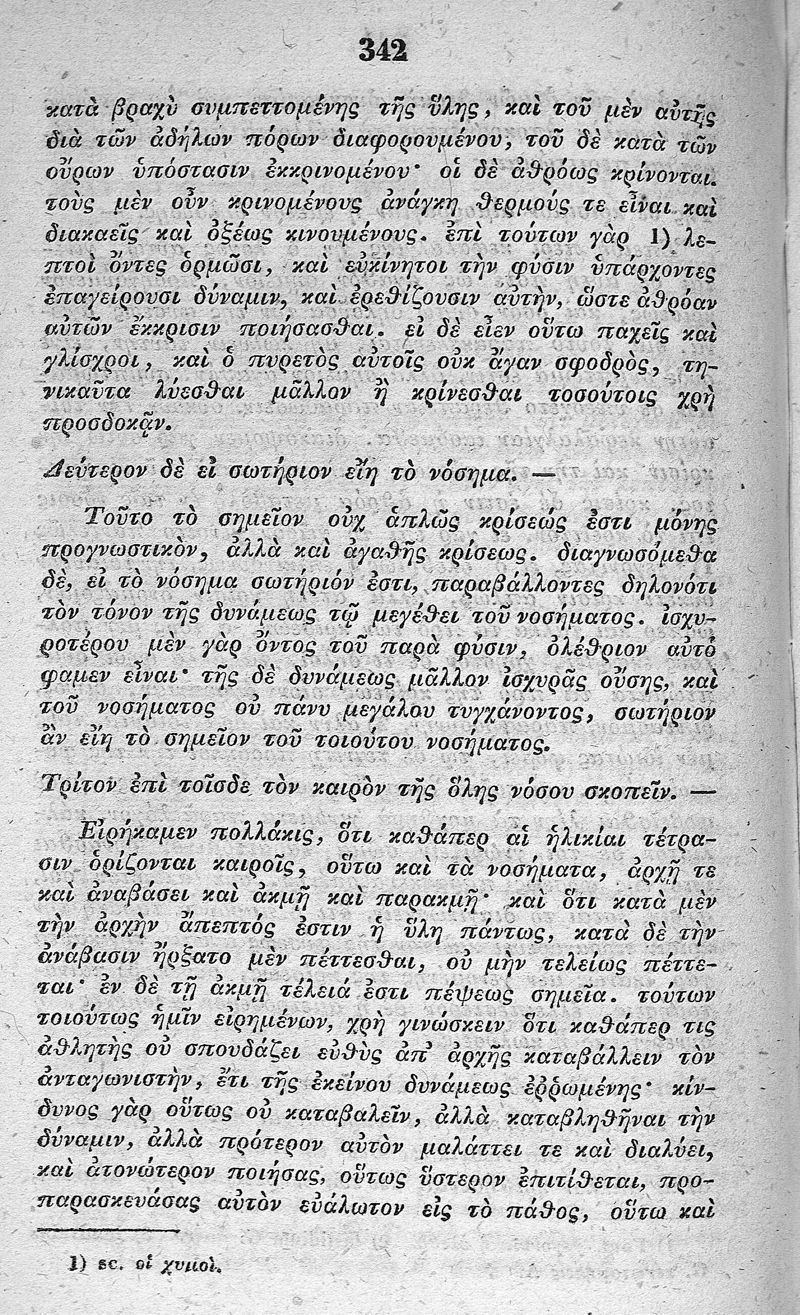 342
κατὰ βραχὺ συμπεττομένης τῆς ὕλης, καὶ τοῦ μὲν αὐτῆς
διὰ τῶν ἀδήλων πόρων διαφορουμένου, τοῦ δὲ κατὰ τῶν
οὔρων ὑπόστασιν ἐκκρινομένου· οἱ δὲ ἀθρόως κρίνονται.
τοὺς μὲν οὖν κρινομένους ἀνάγκη θερμούς τε εἶναι καὶ
διακαεῖς καὶ ὀξέως κινουμένους. ἐπὶ τούτων γὰρ 1) λε-
πτοὶ ὄντες ὁρμῶσι, καὶ εὐκίνητοι τὴν φύσιν ὑπάρχοντες
ἐπαγείρουσι δύναμιν, καὶ ἐρεθίζουσιν αὐτὴν, ὥστε ἀθρόαν
αὐτῶν ἔκκρισιν ποιήσασθαι. εἰ δὲ εἶεν οὕτω παχεῖς καὶ
γλίσχροι, καὶ ὁ πυρετὸς αὐτοῖς οὐκ ἄγαν σφοδρὸς, τη-
νικαῦτα λύεσθαι μᾶλλον ἢ κρίνεσθαι τοσούτοις χρὴ
προσδοκᾷν.
Δεύτερον δὲ εἰ σωτήριον εἴη τὸ νόσημα. —
Τοῦτο τὸ σημεῖον οὐχ ἁπλῶς κρίσεώς ἐστι μόνης
προγνωστικὸν, ἀλλὰ καὶ ἀγαθῆς κρίσεως. διαγνωσόμεθα
δὲ, εἰ τὸ νόσημα σωτήριόν ἐστι, παραβάλλοντες δηλονότι
τὸν τόνον τῆς δυνάμεως τῷ μεγέθει τοῦ νοσήματος. ἰσχυ-
ροτέρου μὲν γὰρ ὄντος τοῦ παρὰ φύσιν, ὀλέθριον αὐτό
φαμεν εἶναι· τῆς δὲ δυνάμεως μᾶλλον ἰσχυρᾶς οὔσης, καὶ
τοῦ νοσήματος οὐ πάνυ μεγάλου τυγχάνοντος, σωτήριον
ἂν εἴη τὸ σημεῖον τοῦ τοιούτου νοσήματος.
Τρίτον ἐπὶ τοῖσδε τὸν καιρὸν τῆς ὅλης νόσου σκοπεῖν. —
Εἰρήκαμεν πολλάκις, ὅτι καθάπερ αἱ ἡλικίαι τέτρα-
σιν ὁρίζονται καιροῖς, οὕτω καὶ τὰ νοσήματα, ἀρχῇ τε
καὶ ἀναβάσει καὶ ἀκμῇ καὶ παρακμῇ· καὶ ὅτι κατὰ μὲν
τὴν ἀρχὴν ἄπεπτός ἐστιν ἡ ὕλη πάντως, κατὰ δὲ τὴν
ἀνάβασιν ἤρξατο μὲν πέττεσθαι, οὐ μὴν τελείως πέττε-
ται· ἐν δὲ τῇ ἀκμῇ τέλειά ἐστι πέψεως σημεῖα. τούτων
τοιούτως ἡμῖν εἰρημένων, χρὴ γινώσκειν ὅτι καθάπερ τις
ἀθλητὴς οὐ σπουδάζει εὐθὺς ἀπ' ἀρχῆς καταβάλλειν τὸν
ἀνταγωνιστὴν, ἔτι τῆς ἐκείνου δυνάμεως ἐῤῥωμένης· κίν-
δυνος γὰρ οὕτως οὐ καταβαλεῖν, ἀλλὰ καταβληθῆναι τὴν
δύναμιν, ἀλλὰ πρότερον αὐτὸν μαλάττει τε καὶ διαλύει,
καὶ ἀτονώτερον ποιήσας, οὕτως ὕστερον ἐπιτίθεται, προ-
παρασκευάσας αὐτὸν εὐάλωτον εἰς τὸ πάθος, οὕτω καὶ
1) sc. οἱ χυμοὶ.